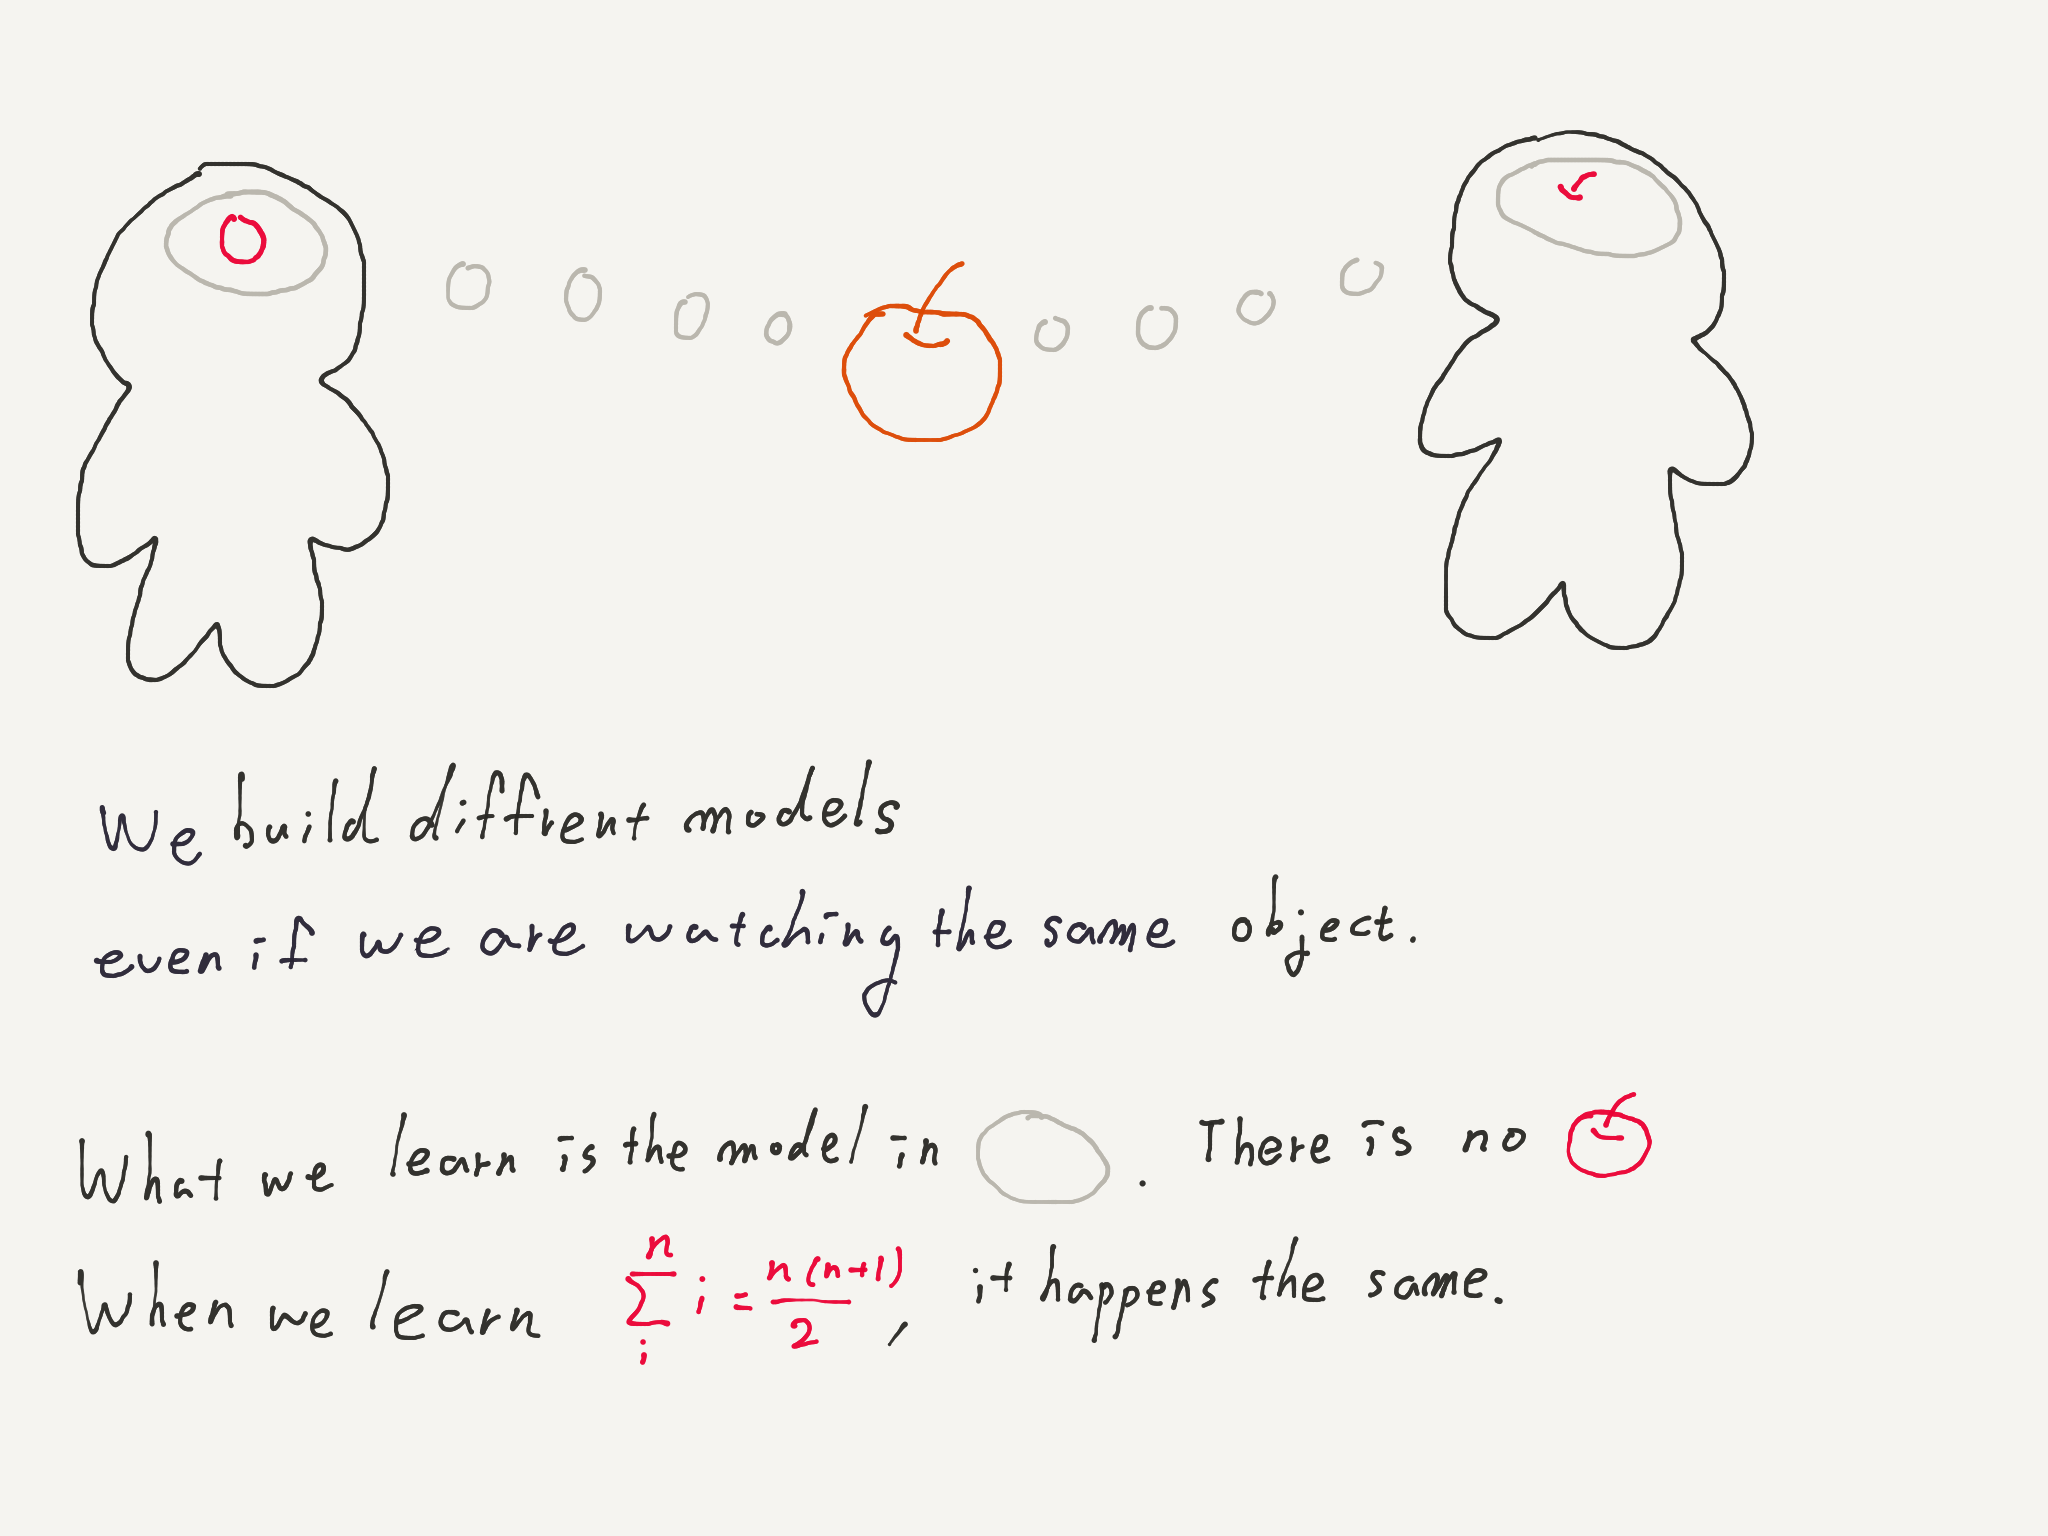 We build diffrent models
even if we are watching the same object.
What we learn is the model in . There is no
When we learn n ∑ i i = n(n+1) / 2 , it happens the same.